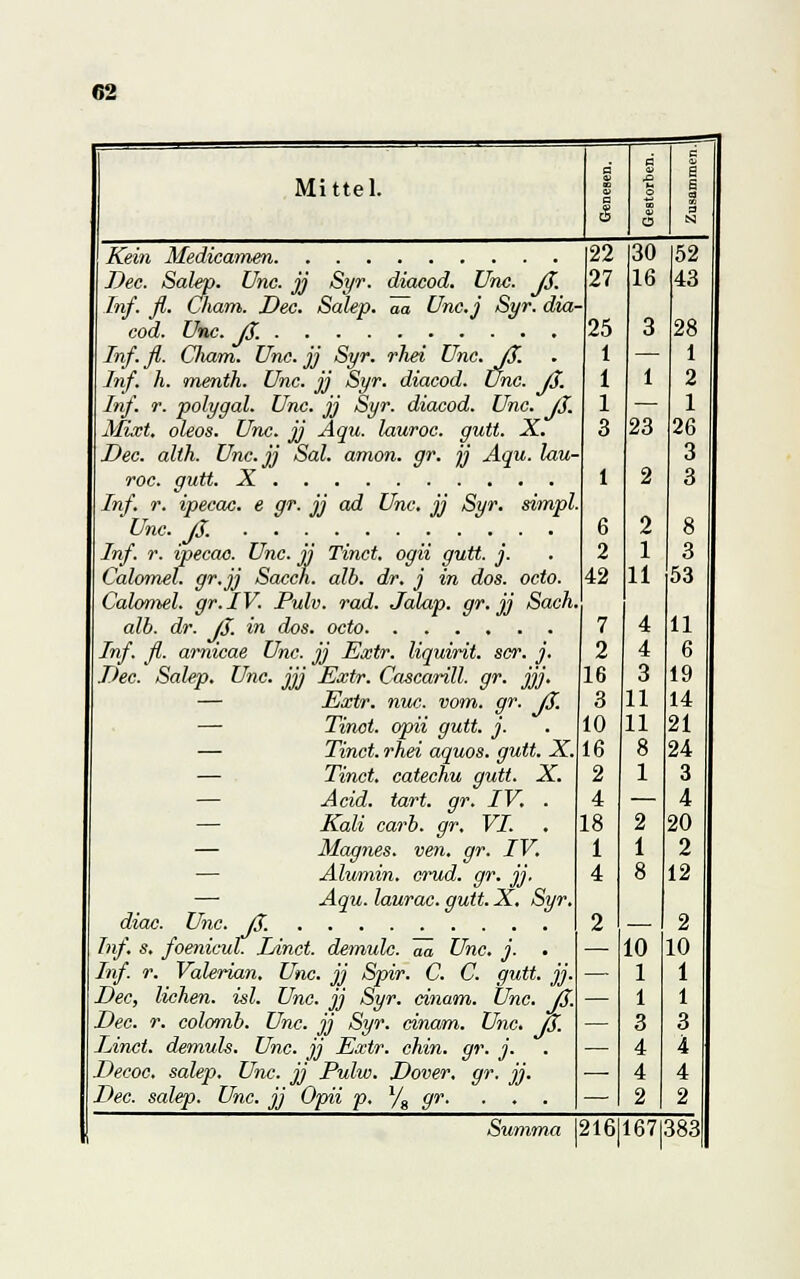 62
Mittel. Genesen. Gestorben. Zusammen.
Kein Medicamen. . . . . . . . . . 22 30 52
Dec. Salep. Unc. jj Syr. diacod. Unc. ß. 27 16 43
Inf. fl. Cham. Dec. Salep. aa Unc. j Syr. dia-
cod. Unc. ß. . . . . . . . . . . 25 3 28
Inf. fl. Cham. Unc. jj Syr. rhei Unc. ß. . 1 — 1
Inf. h. menth. Unc. jj Syr. diacod. Unc. ß. 1 1 2
Inf. r. polygal. Unc. jj Syr. diacod. Unc. ß. 1 — 1
Mixt. oleos. Unc. jj Aqu. lauroc. gutt. X. 3 23 26
Dec. alth. Unc. jj Sal. amon. gr. jj Aqu. lau- 3
roc. gutt. X . . . . . . . . . . 1 2 3
Inf. r. ipecac. e gr. jj ad Unc. jj Syr. simpl.
Unc. ß. . . . . . . . . . . . 6 2 8
Inf. r. ipecac. Unc. jj Tinct. ogii gutt. j. . 2 1 3
Calomel. gr. jj Sacch. alb. dr. j in dos. octo. 42 11 53
Calomel. gr. IV. Pulv. rad. Jalap. gr. jj Sach.
alb. dr. ß. in dos. octo. . . . . . . 7 4 11
Inf. fl. arnicae Unc. jj Extr. liquirit. scr. j. 2 4 6
Dec. Salep. Unc. jjj Extr. Cascarill. gr. jjj. 16 3 19
— Extr. nuc. vom. gr. ß. 3 11 14
— Tinct. opii gutt. j. . 10 11 21
— Tinct. rhei aquos. gutt. X. 16 8 24
— Tinct. catechu gutt. X. 2 1 3
— Acid. tart. gr. IV. . 4 — 4
— Kali carb. gr. VI. . 18 2 20
— Magnes. ven. gr. IV. 1 1 2
— Alumin. crud. gr. jj. 4 8 12
— Aqu. laurac. gutt. X. Syr.
diac. Unc. ß. . . . . . . . . . 2 — 2
Inf. s. foenicul. Linct. demulc. aa Unc. j. . — 10 10
Inf. r. Valerian. Unc. jj Spir. C. C. gutt. jj. — 1 1
Dec, lichen. isl. Unc. jj Syr. cinam. Unc. ß. — 1 1
Dec. r. colomb. Unc. jj Syr. cinam. Unc. ß. — 3 3
Linct. demuls. Unc. jj Extr. chin. gr. j. . — 4 4
Decoc. salep. Unc. jj Pulw. Dover. gr. jj. — 4 4
Dec. salep. Unc. jj Opii p. 1/8 gr. . . . — 2 2
Summa 216 167 383